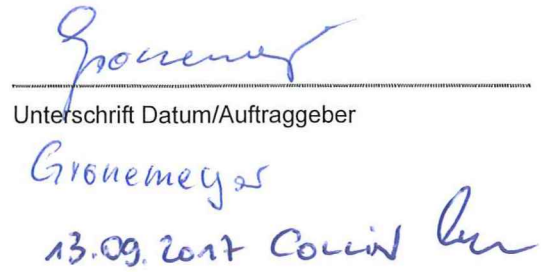 Gronemeyer
Unterschrift Datum/Auftraggeber
Gronemeyer
13.09.2017 Collin